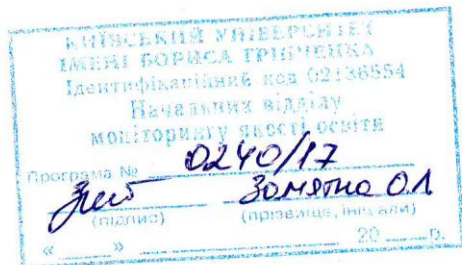 КИЇВСЬКИЙ УНІВЕРСИТЕТ
ІМЕНІ БОРИСА ГРІНЧЕНКА
Ідентифікаційний код 02136554
Начальник відділу
моніторингу якості освіти
Програма № 0240/17
Замятна О.Л
(підпис) (прізвище, ініціали)
« » 20 р.